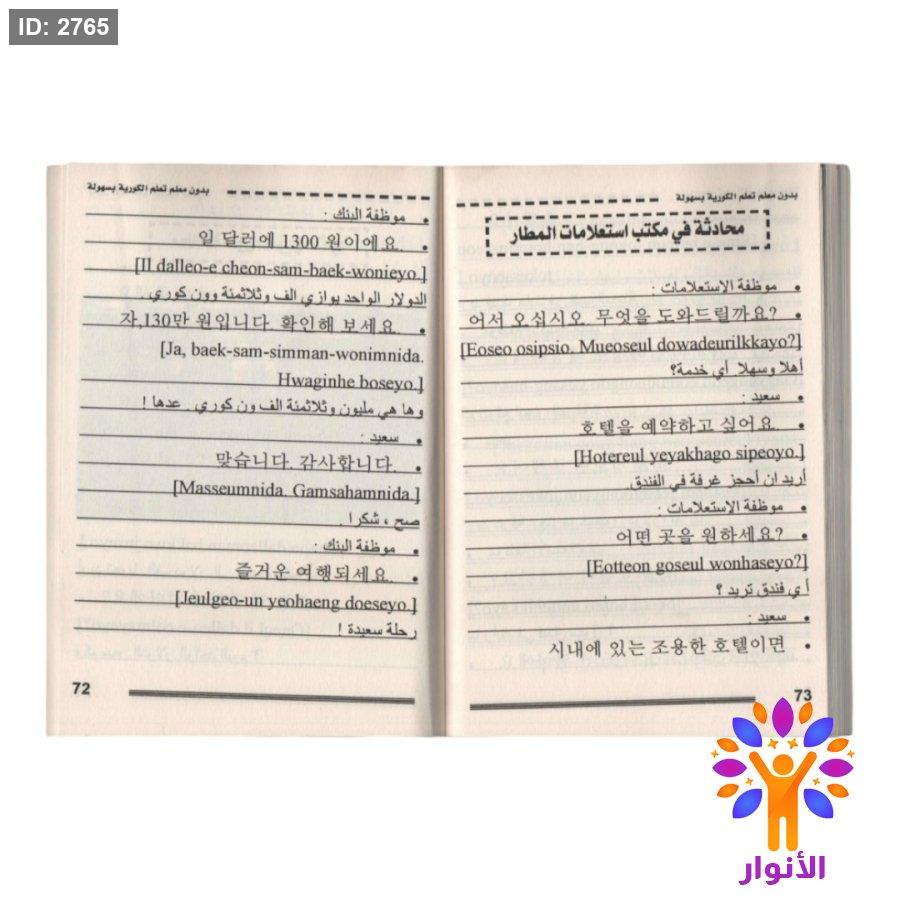 ID: 2765
بدون معلم تعلم الكورية بسهولة
• موظفة البنك :
• 일 달러에 1300 원이에요.
[Il dalleo-e cheon-sam-baek-wonieyo.]
الدولار الواحد يوازي الف وثلاثمئة وون كوري .
• 자,130만 원입니다. 확인해 보세요.
[Ja, baek-sam-simman-wonimnida.
Hwaginhe boseyo.]
وها هي مليون وثلاثمئة الف ون كوري . عدها !
• سعيد :
• 맞습니다. 감사합니다.
[Masseumnida. Gamsahamnida.]
صح ، شكرا .
• موظفة البنك :
• 즐거운 여행되세요.
[Jeulgeo-un yeohaeng doeseyo.]
رحلة سعيدة !
72
بدون معلم تعلم الكورية بسهولة
محادثة في مكتب استعلامات المطار
• موظفة الإستعلامات :
• 어서 오십시오. 무엇을 도와드릴까요?
[Eoseo osipsio. Mueoseul dowadeurilkkayo?]
أهلا وسهلا. أي خدمة؟
• سعيد :
• 호텔을 예약하고 싶어요.
[Hotereul yeyakhago sipeoyo.]
أريد ان أحجز غرفة في الفندق.
• موظفة الإستعلامات :
• 어떤 곳을 원하세요?
[Eotteon goseul wonhaseyo?]
أي فندق تريد ؟
• سعيد :
• 시내에 있는 조용한 호텔이면
73
الأنوار